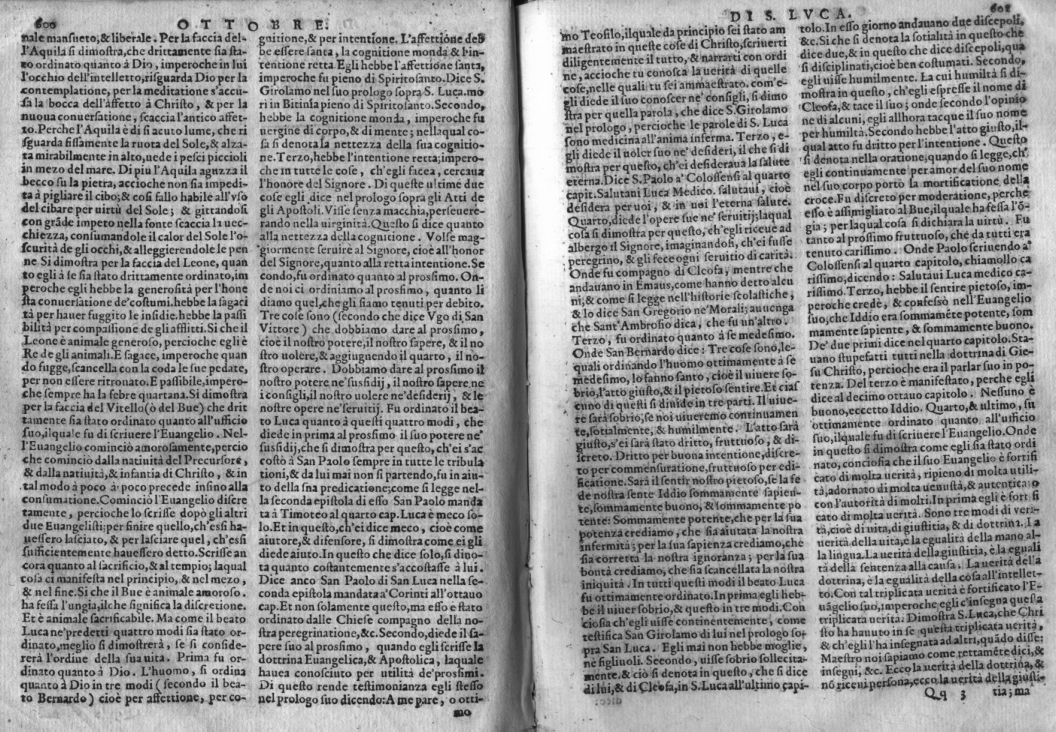 600 OTTOBRE.
nale mansueto, & liberale. Per la faccia del-
l'Aquila si dimostra, che drittamente sia sta-
to ordinato quanto à Dio, imperoche in lui
l'occhio dell'intelletto, risguarda Dio per la
contemplatione, per la meditatione s'accu-
sa la bocca dell'affetto à Christo, & per la
nuoua conuersatione, scaccia l'antico affet-
to. Perche l'Aquila è di sì acuto lume, che ri
sguarda fissamente la ruota del Sole, & alza-
ta mirabilmente in alto, uede i pesci piccioli
in mezo del mare. Di piu l'Aquila aguzza il
becco su la pietra, accioche non sia impedi-
ta à pigliare il cibo; & cosi fallo habile all'vso
del cibare per uirtù del Sole; & gittandosi
con grāde impeto nella fonte scaccia la uec-
chiezza, consumandole il calor del Sole l'o-
scurità de gli occhi, & alleggerendole le pen
ne Si dimostra per la faccia del Leone, quan
to egli à se sia stato drittamente ordinato, im
peroche egli hebbe la generosità per l'hone
sta conuersatione de'costumi. hebbe la sagaci
tà per hauer fuggito le insidie. hebbe la passi
bilità per compassione de gli afflitti. Si che il
Leone è animale generoso, percioche egli è
Re de gli animali. E sagace, imperoche quan
do fugge, scancella con la coda le sue pedate,
per non essere ritrouato. E passibile, impero-
che sempre ha la febre quartana. Si dimostra
per la faccia del Vitello (ò del Bue) che drit
tamente sia stato ordinato quanto all'ufficio
suo, ilquale fu di scriuere l'Euangelio. Nel-
l'Euangelio cominciò amorosamente, percio
che cominciò dalla natiuità del Precursore,
& dalla natiuità, & infantia di Christo, & in
tal modo à poco à poco precede infino alla
consumatione. Cominciò l'Euangelio discre
tamente, percioche lo scrisse dopò gli altri
due Euangelisti: per finire quello, ch'essi ha-
uessero lasciato, & per lasciare quel, ch'essi
sufficientemente hauessero detto. Scrisse an
cora quanto al sacrificio, & al tempio; laqual
cosa ci manifesta nel principio, & nel mezo,
& nel fine. Si che il Bue è animale amoroso.
ha fessa l'ungia, ilche significa la discretione.
Et è animale sacrificabile. Ma come il beato
Luca ne'predetti quattro modi sia stato or-
dinato, meglio si dimostrerà, se si conside-
rerà l'ordine della sua uita. Prima fu or-
dinato quanto à Dio. L'huomo, si ordina
quanto à Dio in tre modi (secondo il bea-
to Bernardo) cioè per affettione, per co-
gnitione, & per intentione. L'affettione deb
be essere santa, la cognitione monda & l'in-
tentione retta Egli hebbe l'affettione santa,
imperoche fu pieno di Spiritosanto. Dice S.
Girolamo nel suo prologo sopra S. Luca. mo
ri in Bitinia pieno di Spiritosanto. Secondo,
hebbe la cognitione monda, imperoche fu
uergine di corpo, & di mente; nellaqual co-
sa si denota la nettezza della sua cognitio-
ne. Terzo, hebbe l'intentione retta; impero-
che in tutte le cose, ch'egli facea, cercaua
l'honore del Signore. Di queste ultime due
cose egli dice nel prologo sopra gli Atti de
gli Apostoli. Visse senza macchia, perseuere-
rando nella uirginità. Questo si dice quanto
alla nettezza della cognitione. Volse mag-
giormente seruire al Signore, cioè all'honor
del Signore, quanto alla retta intentione. Se
condo, fu ordinato quanto al prossimo. On-
de noi ci ordiniamo al prossimo, quanto li
diamo quel, che gli siamo tenuti per debito.
Tre cose sono (secondo che dice Vgo di San
Vittore) che dobbiamo dare al prossimo,
cioè il nostro potere, il nostro sapere, & il no
stro uolere, & aggiugnendo il quarto, il no-
stro operare. Dobbiamo dare al prossimo il
nostro potere ne'sussidij, il nostro sapere ne
i consigli, il nostro uolere ne'desiderij, & le
nostre opere ne'seruitij. Fu ordinato il bea-
to Luca quanto à questi quattro modi, che
diede in prima al prossimo il suo potere ne'
sussidij, che si dimostra per questo, ch'ei s'ac
costò à San Paolo sempre in tutte le tribula
tioni, & da lui mai non si partendo, fu in aiu-
to della sua predicatione; come si legge nel-
la seconda epistola di esso San Paolo manda
ta à Timoteo al quarto cap. Luca è meco so-
lo. Et in questo, ch'ei dice meco, cioè come
aiutore, & difensore, si dimostra come ei gli
diede aiuto. In questo che dice solo, si dino-
ta quanto costantemente s'accostasse à lui.
Dice anco San Paolo di San Luca nella se-
conda epistola mandata a'Corinti all'ottauo
cap. Et non solamente questo, ma esso è stato
ordinato dalle Chiese compagno della no-
stra peregrinatione, &c. Secondo, diede il sa-
pere suo al prossimo, quando egli scrisse la
dottrina Euangelica, & Apostolica, laquale
hauea conosciuto per utilità de'prossimi.
Di questo rende testimonianza egli stesso
nel prologo suo dicendo: A me pare, o otti-
mo
DI S. LVCA. 601
mo Teofilo, ilquale da principio sei stato am
maestrato in queste cose di Christo, scriuerti
diligentemente il tutto, & narrarti con ordi
ne, accioche tu conosca la uerità di quelle
cose, nelle quali tu sei ammaestrato. com'e-
gli diede il suo conoscer ne'consigli, si dimo
stra per quella parola, che dice S. Girolamo
nel prologo, percioche le parole di S. Luca
sono medicina all'anima inferma. Terzo, e-
gli diede il uoler suo ne'desideri, il che si di
mostra per questo, ch'ei desideraua la salute
eterna. Dice S. Paolo a' Colossensi al quarto
capit. Salutaui Luca Medico. salutaui, cioè
desidera per uoi, & in uoi l'eterna salute.
Quarto, diede l'opere sue ne'seruitij; laqual
cosa si dimostra per questo, ch'egli riceuè ad
albergo il Signore, imaginandosi, ch'ei fusse
peregrino, & gli fece ogni seruitio di carità.
Onde fu compagno di Cleofa, mentre che
andauano in Emaus, come hanno detto alcu
ni; & come si legge nell'historie scolastiche,
& lo dice San Gregorio ne'Morali; auuenga
che Sant'Ambrosio dica, che fu un'altro.
Terzo, fu ordinato quanto à se medesimo.
Onde San Bernardo dice: Tre cose sono, le-
quali ordinando l'huomo ottimamente à se
medesimo, lo fanno santo, cioè il uiuere so-
brio, l'atto giusto, & il pietoso sentire. Et cias
cuno di questi si diuide in tre parti. Il uiue-
re sarà sobrio, se noi uiueremo continuamen
te, sotialmente, & humilmente. L'atto sarà
giusto, s'ei sarà stato dritto, fruttuoso, & di-
screto. Dritto per buona intentione, discre-
to per commensuratione, fruttuoso per edi-
ficatione. Sarà il sentir nostro pietoso, se la fe
de nostra sente Iddio sommamente sapien-
te, sommamente buono, & sommamente po
tente: Sommamente potente, che per la sua
potenza crediamo, che sia aiutata la nostra
infermità; per la sua sapienza crediamo, che
sia corretta la nostra ignoranza; per la sua
bontà crediamo, che sia scancellata la nostra
iniquità. In tutti questi modi il beato Luca
fu ottimamente ordinato. In prima egli heb-
be il uiuer sobrio, & questo in tre modi. Con
ciosia ch'egli uisse continentemente, come
testifica San Girolamo di lui nel prologo so-
pra San Luca. Egli mai non hebbe moglie,
nè figliuoli. Secondo, uisse sobrio sollecita-
mente. & ciò si denota in questo, che si dice
di lui, & di Cleofa, in S. Luca all'ultimo capi-
tolo. In esso giorno andauano due discepoli,
&c. Si che si denota la sotialità in questo che
dice due, & in questo che dice discepoli, qua
si disciplinati, cioè ben costumati. Secondo,
egli uisse humilmente. La cui humiltà si di-
mostra in questo, ch'egli espresse il nome di
Cleofa, & tace il suo; onde secondo l'opinio
ne di alcuni, egli allhora tacque il suo nome
per humiltà. Secondo hebbe l'atto giusto, il-
qual atto fu dritto per l'intentione. Questo
si denota nella oratione, quando si legge, ch'
egli continuamente per amor del suo nome
nel suo corpo portò la mortificatione della
croce. Fu discreto per moderatione, perche
esso è assimigliato al Bue, ilquale ha fessa l'ō-
gia; per laqual cosa si dichiara la uirtù. Fu
tanto al prossimo fruttuoso, che da tutti era
tenuto carissimo. Onde Paolo scriuendo a'
Colossensi al quarto capitolo, chiamollo ca
rissimo, dicendo: Salutaui Luca medico ca-
rissimo. Terzo, hebbe il sentire pietoso, im-
peroche credè, & confessò nell'Euangelio
suo, che Iddio era sommamēte potente, som
mamente sapiente, & sommamente buono.
De' due primi dice nel quarto capitolo. Sta-
uano stupefatti tutti nella dottrina di Gie-
su Christo, percioche era il parlar suo in po-
tenza. Del terzo è manifestato, perche egli
dice al decimo ottauo capitolo. Nessuno è
buono, eccetto Iddio. Quarto, & ultimo, fu
ottimamente ordinato quanto all'ufficio
suo, ilquale fu di scriuere l'Euangelio. Onde
in questo si dimostra come egli sia stato ordi
nato, conciosia che il suo Euangelio è fortifi
cato di molta uerità, ripieno di molta utili-
tà, adornato di molta uenustà, & autentica o
con l'autorità di molti. In prima egli è forti fi
cato di molta uerità. Sono tre modi di ueri-
tà, cioè di uita, di giustitia, & di dottrina. La
uerità della uita, è la egualità della mano al-
la lingua. La uerità della giustitia, è la eguali
tà della sentenza alla causa. La uerità della
dottrina, è la egualità della cosa all'intellet-
to. Con tal triplicata uerità è fortificato l'E-
uāgelio suo, imperoche egli c'insegna questa
triplicata uerità. Dimostra S. Luca, che Chri
sto ha hauuto in se questa triplicata uerità,
& ch'egli l'ha insegnata ad altri, quādo disse:
Maestro noi sapiamo come rettamēte dici, &
insegni, &c. Ecco la uerità della dottrina, &
nō riceui persona, ecco la uerità della giusti-
Qq 3 tia; ma